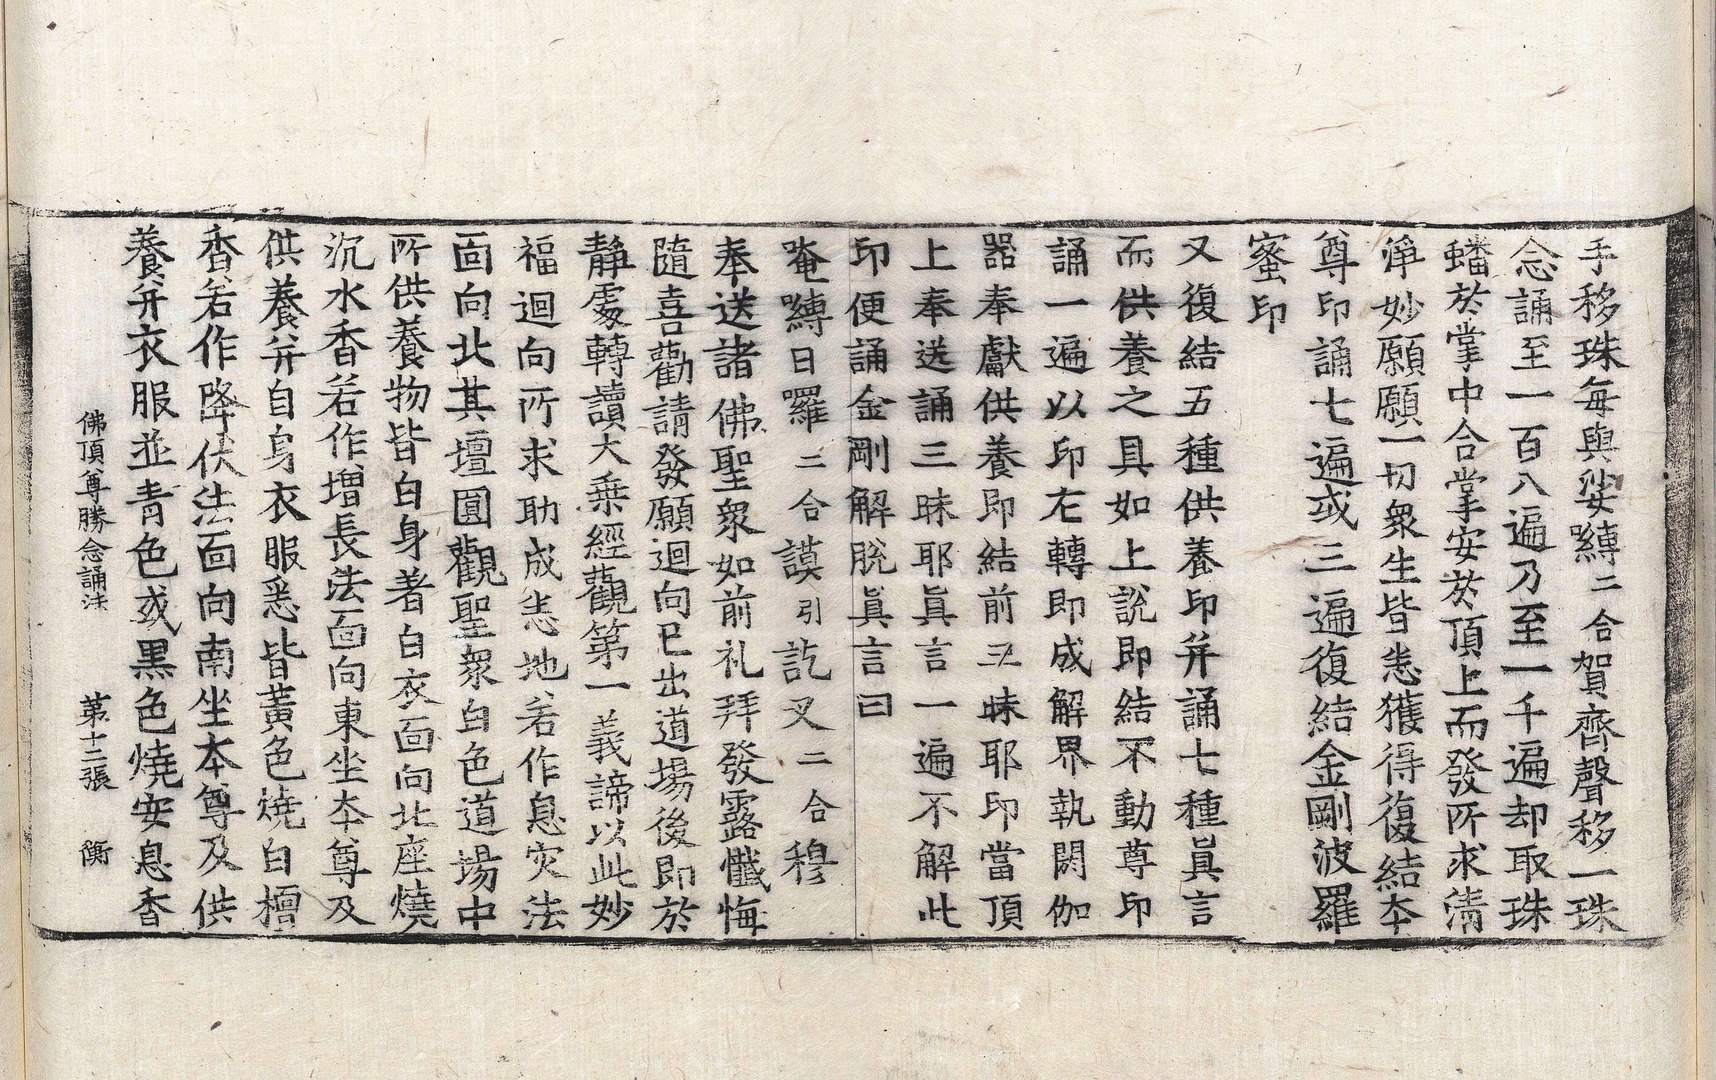 手移珠每與娑嚩二合賀齊聲移一珠
念誦至一百八遍乃至一千遍却取珠
蟠於掌中合掌安於頂上而發所求清
淨妙願願一切衆生皆悉獲得復結本
尊印誦七遍或三遍復結金剛波羅
蜜印
又復結五種供養印并誦七種眞言
而供養之具如上說即結不動尊印
誦一遍以印左轉即成解界執閼伽
器奉獻供養即結前三昧耶印當頂
上奉送誦三昧耶眞言一遍不解此
印便誦金剛解脫眞言曰
唵嚩日羅二合謨引訖叉二合穆
奉送諸佛聖衆如前礼拜發露懺悔
隨喜勸請發願迴向已出道場後即於
靜處轉讀大乗經觀第一義諦以此妙
福迴向所求助成悉地若作息灾法
面向北其壇圓觀聖衆白色道場中
所供養物皆白身著白衣面向北座燒
沉水香若作增長法面向東坐本尊及
供養并自身衣服悉皆黃色燒白檀
香若作降伏法面向南坐本尊及供
養并衣服並青色或黑色燒安息香
佛頂尊勝念誦法　第十二張　衡